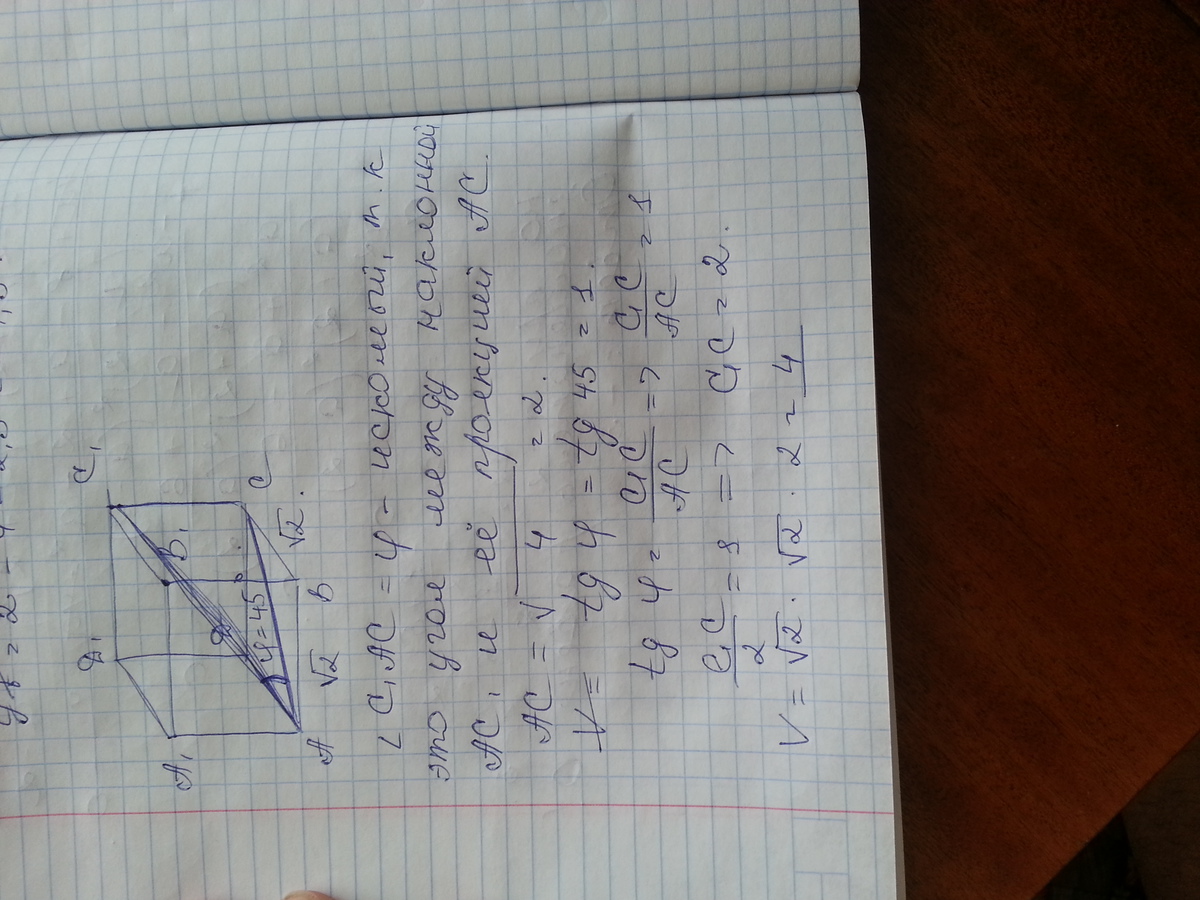 C₁
D₁
B₁
A₁
D
φ=45°
C
A √2 B √2.
∠ C₁AC = φ - искомый, т.к
это угол между наклонной
AC₁ и её проекцией AC.
AC = √4 = 2.
V = tg φ = tg 45 = 1.
tg φ = C₁C/AC => C₁C/AC = 1
C₁C/2 = 1 => C₁C = 2.
V = √2 · √2 · 2 = 4